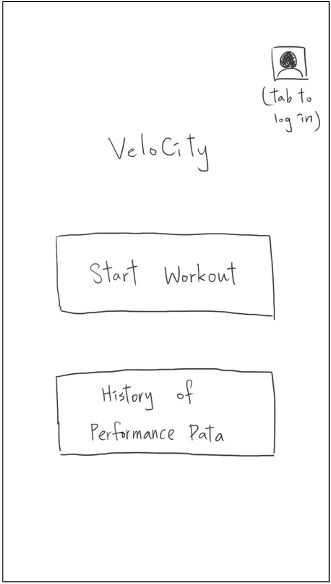 (tab to
log in)
VeloCity
Start Workout
History of
Performance Data